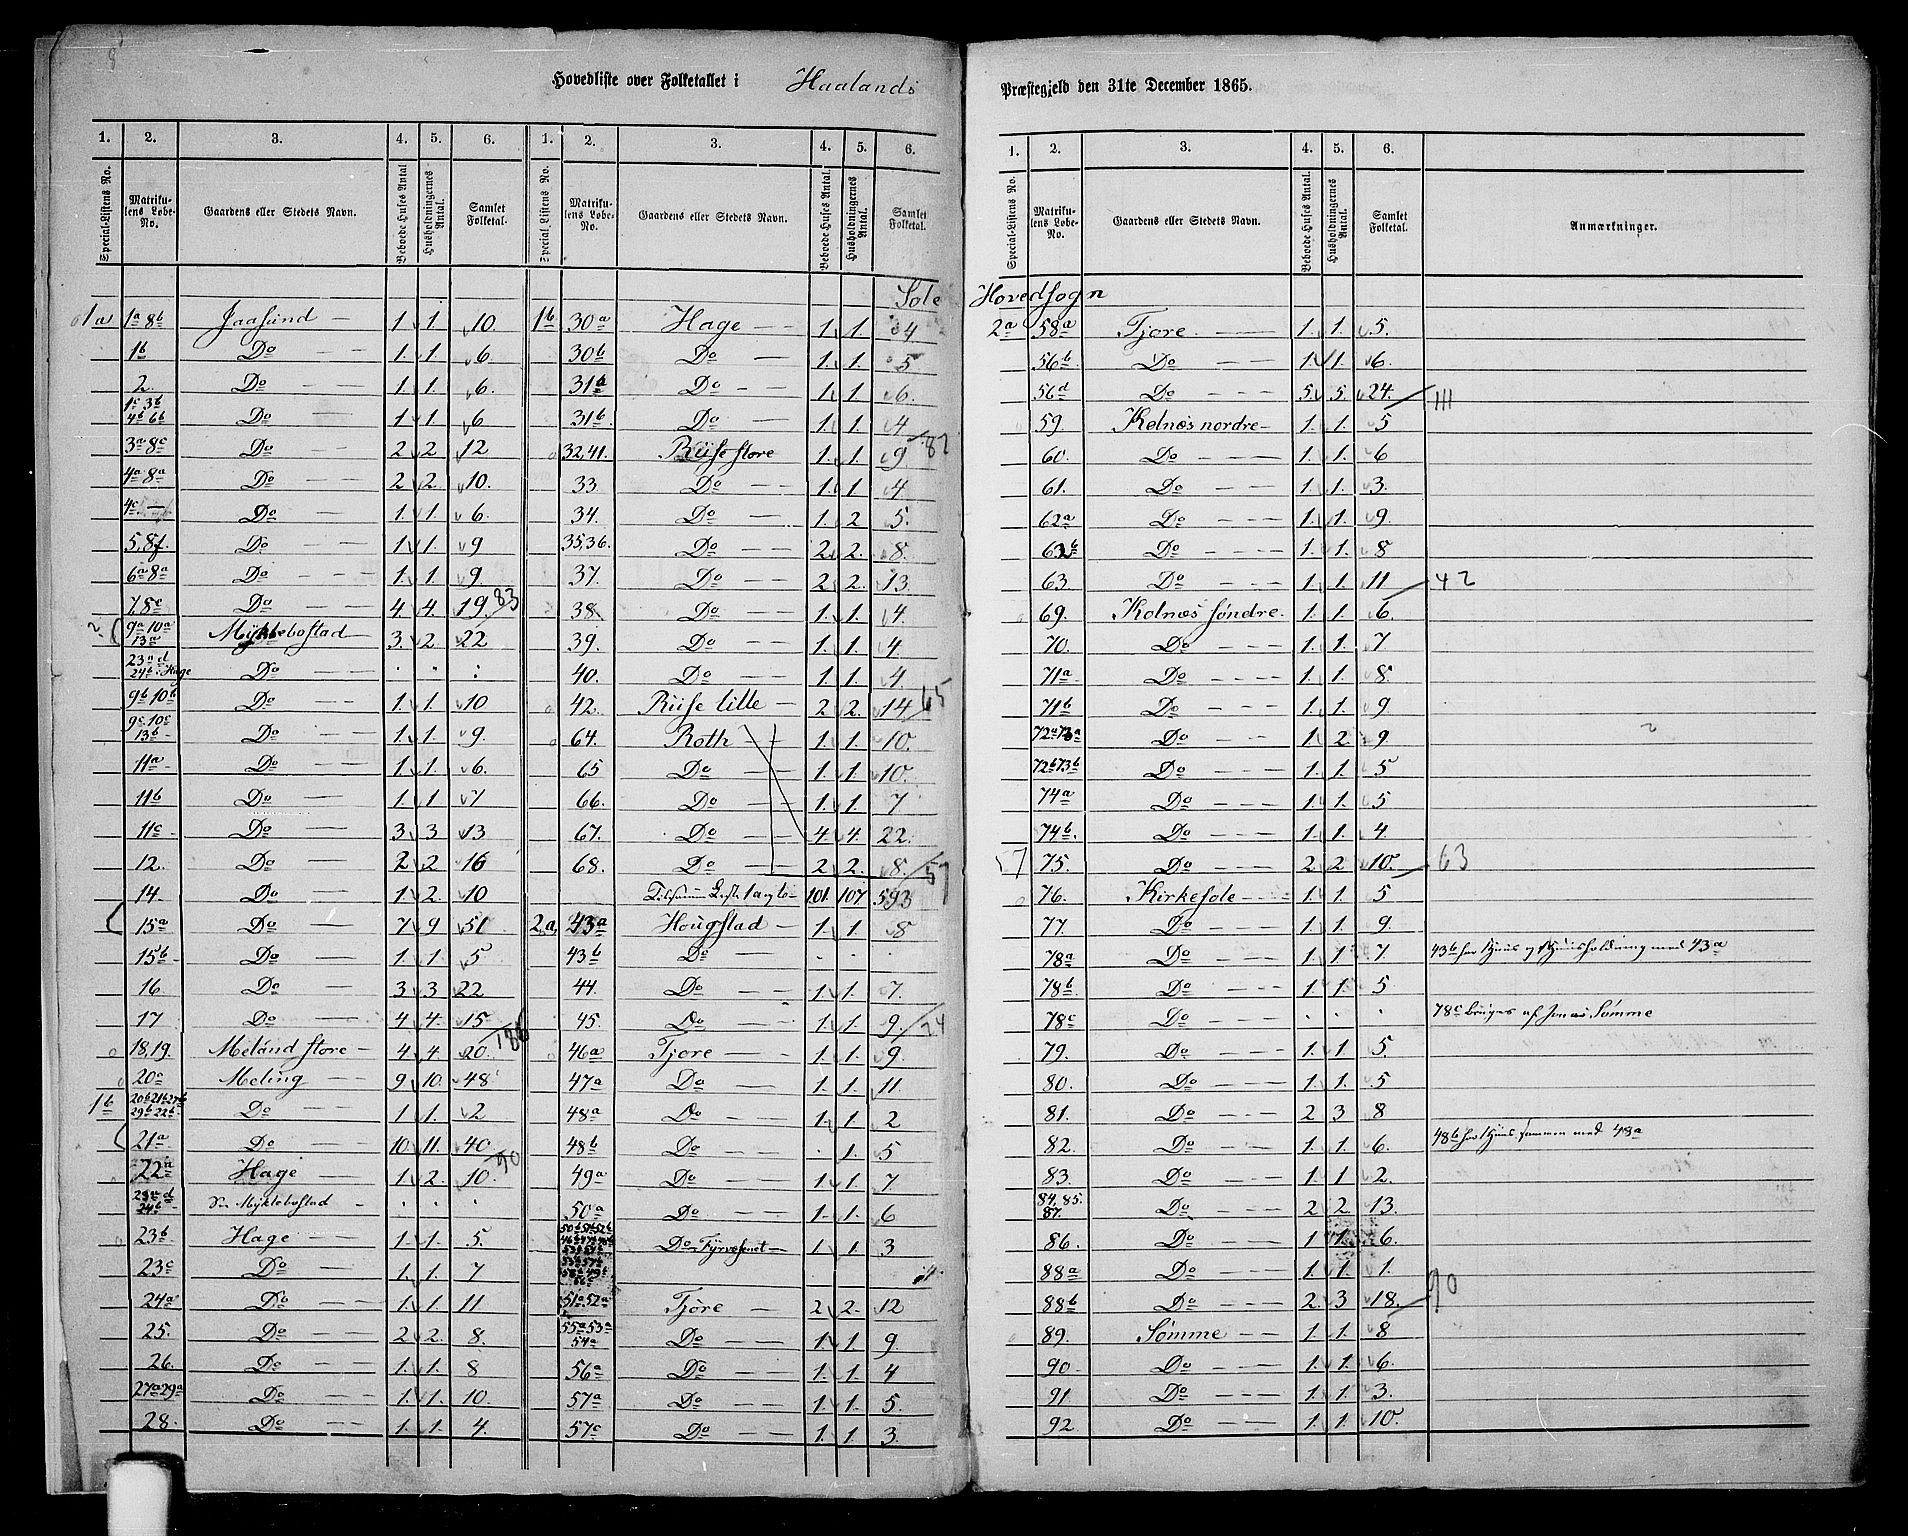 Hovedliste over Folketallet i Haalands Præstegjeld den 31te December 1865.
1. 2. 3. 4. 5. 6. 1. 2. 3. 4. 5. 6.
Special-Listens No. Matrikulens Løbe-No. Gaardens eller Stedets Navn. Beboede Huses Antal Husholdningernes Antal. Samlet Folketal. Special-Listens No. Matrikulens Løbe-No. Gaardens eller Stedets Navn. Beboede Huses Antal. Husholdningernes Antal. Samlet Folketal.
1a 1a 8b Jaasund 1 1. 10
1b Do 1. 1. 6
2. Do 1 1. 6.
1c 3b 4b 6b Do 1 1 6
3a 8c Do 2 2 12
4a 8a Do 2 2. 10.
4c Do 1. 1 6.
5, 8f. Do 1 1. 9
6a 8a Do 1 1. 9.
7, 8c Do 4. 4. 19 83
9a 10a 13a Myklebostad 3. 2. 22
23a d 24b i Hage Do . . .
9b 10b Do 1 1. 10
9c 10c 13b Do 1. 1. 9.
11a Do 1 1. 6.
11b Do 1. 1 7
11c Do 3 3 13
12. Do 2 2 16
14. Do 1 2. 10
15a Do 7 9 51
15b Do 1 1 5
16 Do 3 3 22
17 Do 4 4. 15 186
18, 19. Meland store 4 4 20
20a Meling 9 10. 48
1b 20b 21b 27b 29b 22b Do 1 1. 2
21a Do 10. 11. 40 90
22a Hage 1 2. 10.
23a d 24b Se Myklebostad . . .
23b Hage 1 1 5.
23c Do 1. 1. 7
24a Do 1 1. 11
25. Do 2 2. 8.
26. Do 1. 1. 8
27a 29a Do 1 1. 10
28. Do 1. 1. 4.
Sole Hovedsogn
1b 30a Hage 1 1. 4
30b Do 1 1. 5
31a Do 1 1. 6.
31b. Do 1 1. 4 82
32, 41. Riise store 1 1. 9.
33 Do 1. 1. 4
34. Do 1. 2 5.
35, 36. Do 2 2. 8.
37. Do 2 2. 13
38 Do 1 1. 4.
39. Do 1 1. 4.
40. Do 1 1. 4.
42. Riise lille 2 2. 14 65
64. Roth 1. 1. 10.
65 Do 1. 1. 10.
66. Do 1 1. 7
67. Do 4 4. 22.
68. Do 2 2. 8. 57
101. 107 593
2a 43a Hougstad 1 1 8
43b Do . . .
44. Do 1 1. 7.
45. Do 1 1. 9. 24
46a Tjore 1 1. 9.
47a Do 1. 1. 11
48a Do 1 1. 2
48b Do . 1. 5
49a Do 1 1. 7
50a Do 1. 1. 6
Do Fyrvæsenet 1 1. 3
51a. 52a Tjore 2 2. 12
55a 53a 54a Do 1 1. 9
56a Do 1 1. 4
57a Do 1 1. 5.
57c Do 1. 1. 3.
1. 2. 3. 4. 5. 6.
Special-Listens No. Matrikulens Løbe-No. Gaardens eller Stedets Navn. Beboede Huses Antal. Husholdningernes Antal. Samlet Folketal. Anmærkninger.
2a 58a Tjore 1. 1. 5.
56b Do 1. 1. 6.
56d Do 5. 5. 24. 111
59. Kolnæs nordre 1. 1. 5
60. Do 1. 1. 6
61. Do 1. 1. 3.
62a Do 1 1. 9
62b Do 1. 1. 8
63. Do 1. 1. 11 42
69. Kolnæs søndre 1. 1. 6.
70. Do 1. 1. 7
71a Do 1. 1. 8.
71b Do 1. 1. 9
72a 73a Do 1. 2. 9.
72b 73b Do 1. 1. 5
74a Do 1. 1. 5
74b. Do 1. 1. 4
57 75. Do 2. 2 10. 63
76. Kirkesole 1. 1. 5
77. Do 1. 1. 9.
78a Do 1. 1 7 43b har Huus og Huusholdning med 43a
78b. Do 1. 1. 5
78c Do . . . 78c bruges af Jonas Sømme
79. Do 1. 1. 5.
80. Do 1. 1. 5
81. Do 2 3 8
82. Do 1. 1. 6. 48b har Huus sammen med 48a
83. Do 1. 1 2.
84. 85. 87. Do 2 2. 13.
86. Do 1 1. 6.
88a Do 1. 1. 1.
88b Do 2. 3 18. 90
89. Sømme 1. 1. 8
90. Do 1. 1. 6.
91 Do 1. 1 3.
92 Do 1. 1. 10.